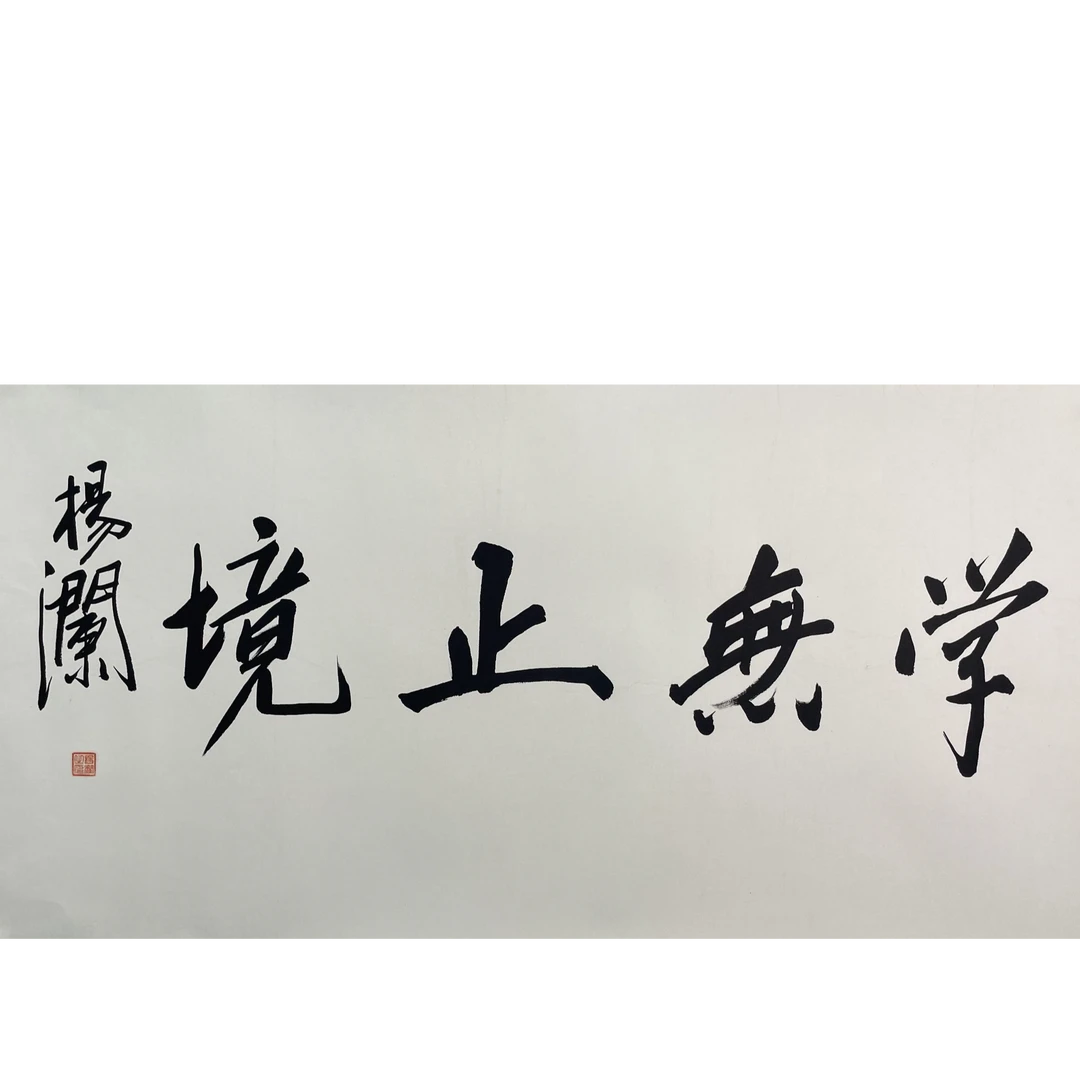 学無止境
楊瀾